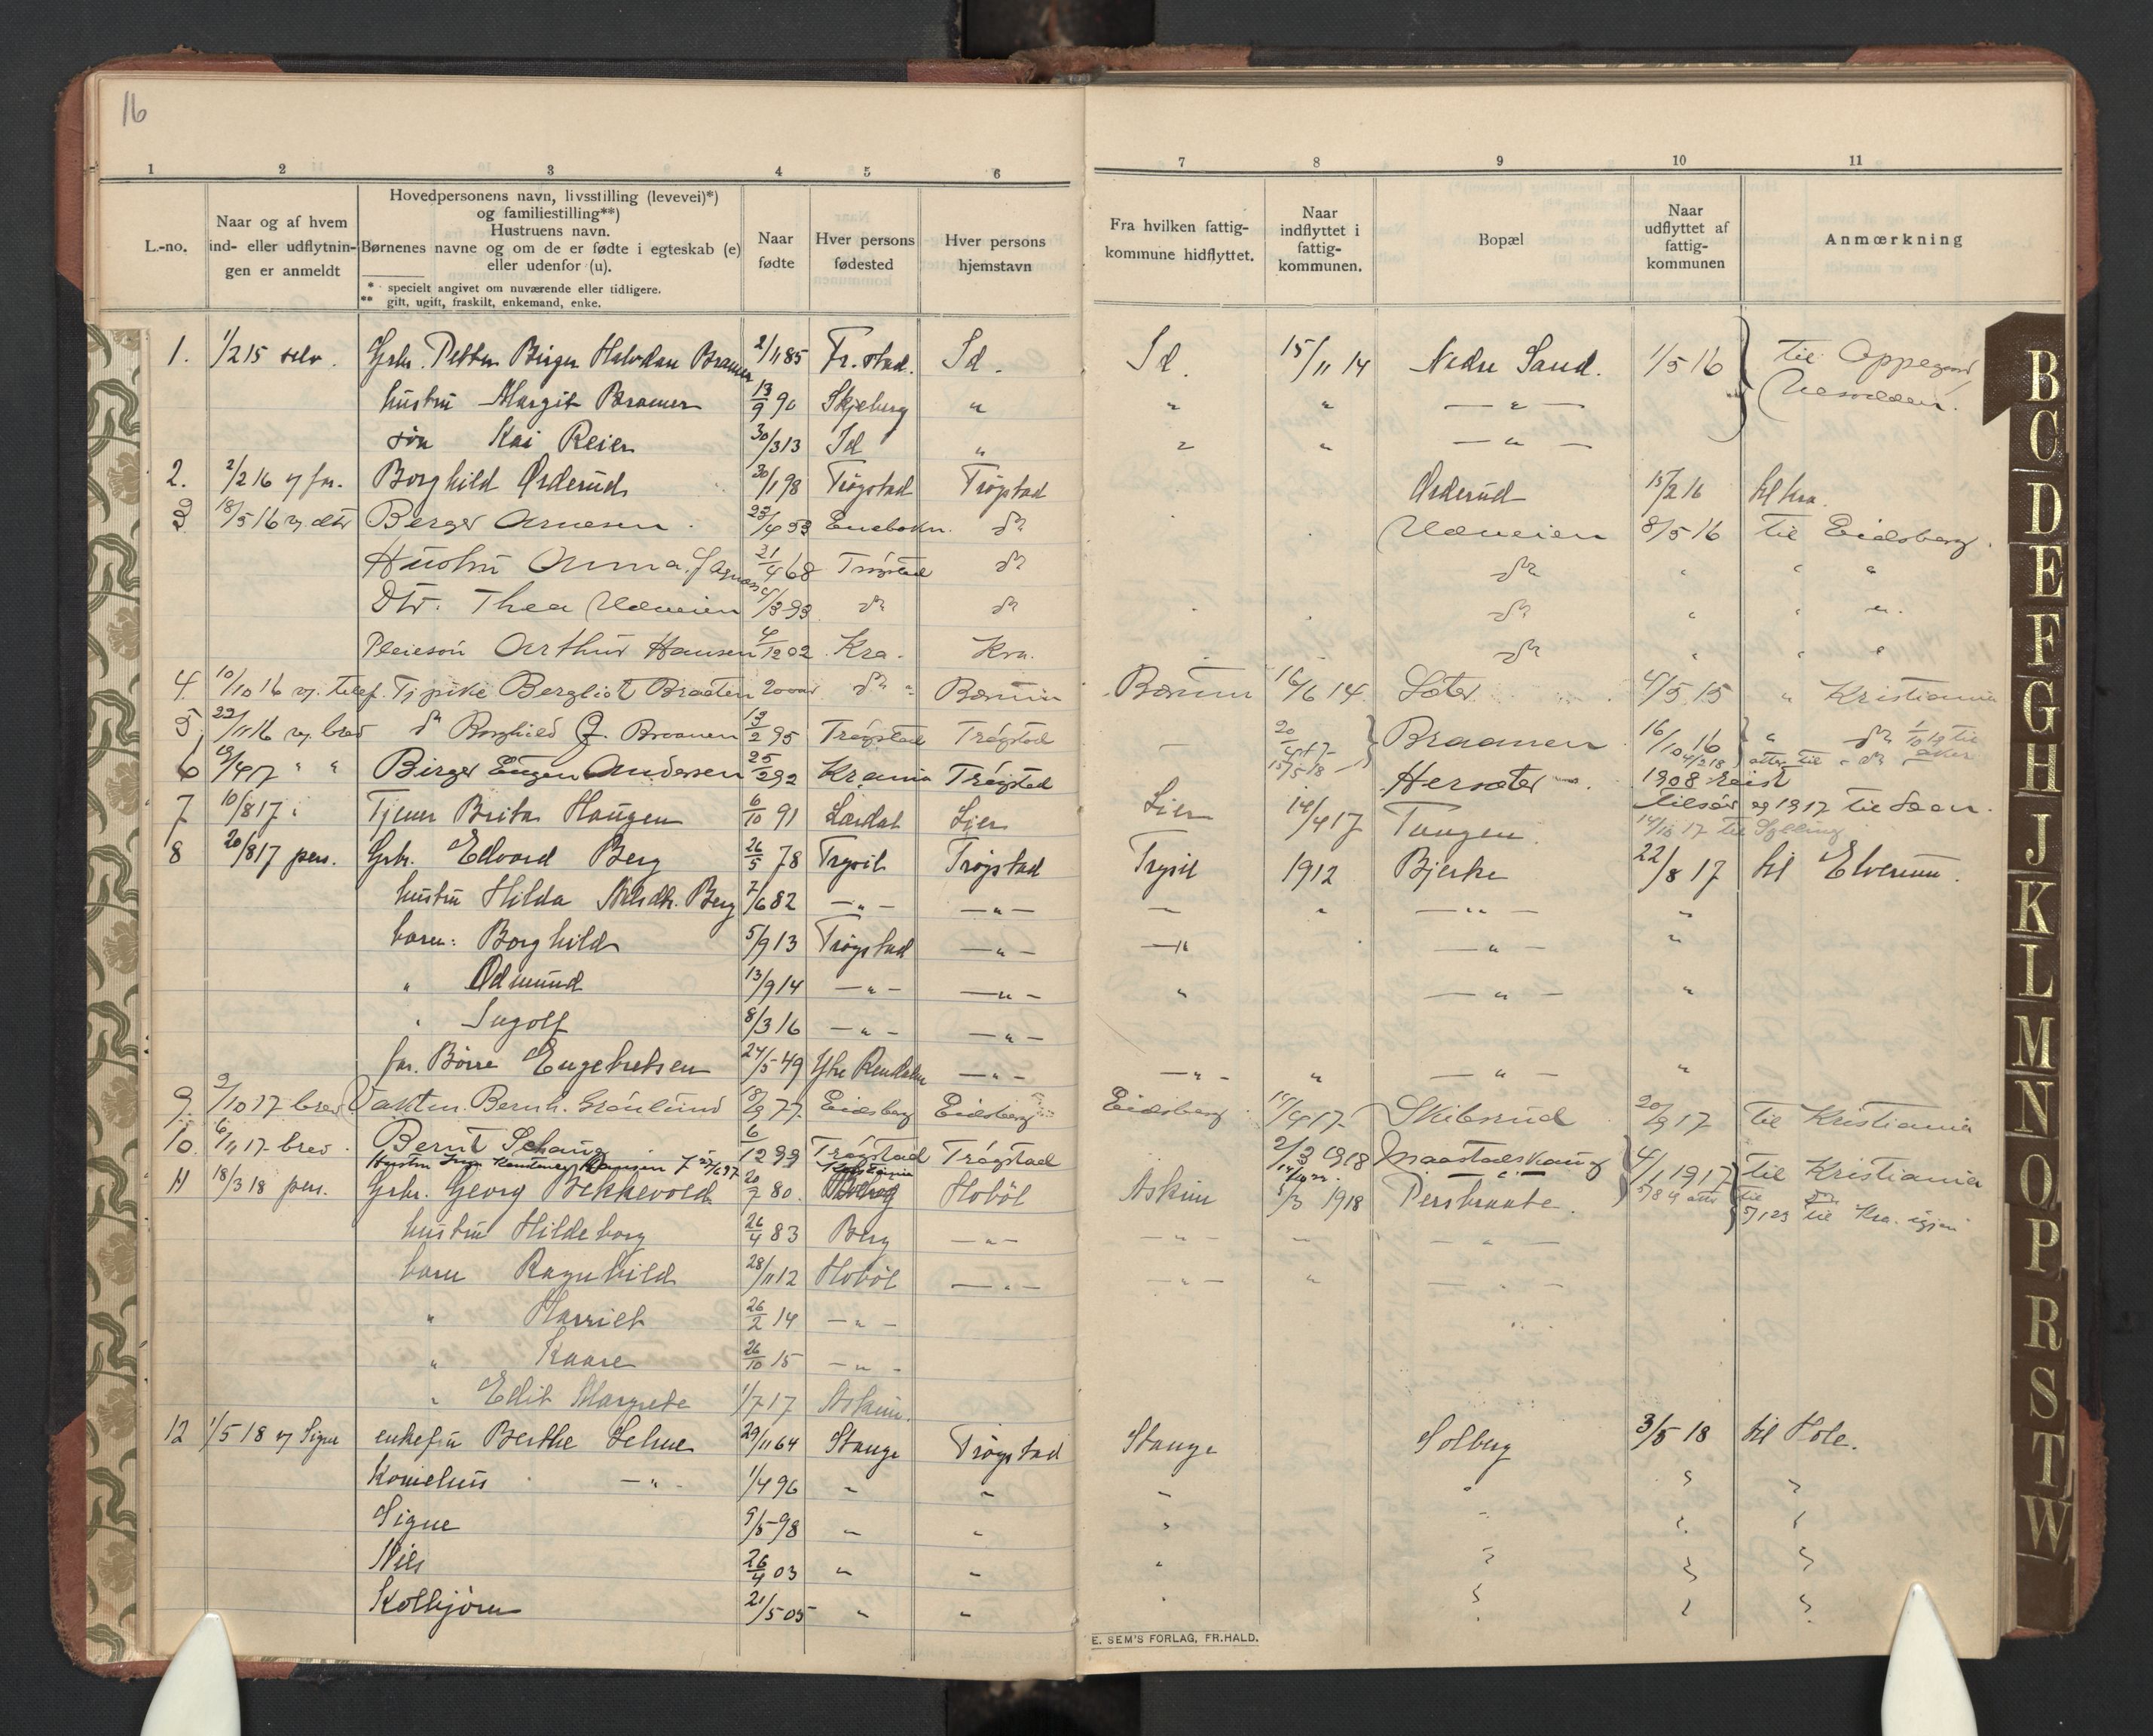 16
1 2 3 4 5 6 7 8 9 10 11
L.-no.
Naar og af hvem
ind- eller udflytnin-
gen er anmeldt
Hovedpersonens navn, livsstilling (levevei)*)
og familiestilling**)
Hustruens navn.
Børnenes navne og om de er fødte i egteskab (e)
eller udenfor (u).
* specielt angivet om nuværende eller tidligere.
** gift, ugift, fraskilt, enkemand, enke.
Naar
fødte
Hver persons
fødested
Hver persons
hjemstavn
Fra hvilken fattig-
kommune hidflyttet.
Naar
indflyttet i
fattig-
kommunen.
Bopæl
Naar
udflyttet af
fattig-
kommunen
Anmærkning
1. 1/2 15 selv. Grbr. Petter Birger Halvdan Bramer 2/11 85 Fr.stad. Id. Id. 15/11 14 Nedre Sand. 1/5 16 til Oppegard
hustru Margit Bramer 13/9 90 Skjeberg " " " — " —
søn Kai Reier 30/3 13 Id " " " — " —
2. 2/2 16 v/ far. Borghild Orderud 30/1 98 Trøgstad Trøgstad Orderud 15/2 16 til Kra.
3 18/5 16 v/ dtr Berger Arnesen 23/4 53 Enebakk. do Udueien 8/5 16 til Eidsberg.
Hustru Anna 21/4 68 Trøgstad do do " " "
Dtr. Thea Udueien 4/3 93 do do do " " "
Pleiesön Arthur Hansen 4/12 02 Kra. Kra. do " " "
4. 10/10 16 v. telef. Tj pike Bergliot Braaten 20 aar do " Bærum Bærum 16/6 14 Sæter 4/5 15 " Kristiania
5. 22/11 16 v. brev do Borghild J. Braanen 13/2 95 Trøgstad Trøgstad — 20/4 17 Braanen 16/10 16 " do 1/10 19 til
15/5 18 4/2 18 atter til do aker
6 19/4 17 " " Birger Eugen Andersen 25/2 92 Krania Trøgstad Hersæter 1908 reist
tilsøs og 1917 til Saan.
7 10/8 17 " Tjener Brita Haugen 6/10 91 Lærdal Lier Lier 14/4 17 Tangen. 14/10 17 til Sylling
8 20/8 17 pers. Grbr. Edvard Berg 26/5 78 Trysil Trøgstad Trysil 1912 Bjerke 22/8 17 til Elverum.
hustru Hilda Berg 7/6 82 — " — — " — — " — " — "
barn: Borghild 5/9 13 Trøgstad — " — — " — " — "
" Odmund 13/9 14 — " — — " — " — " — "
" Ingolf 8/3 16 — " — — " —
far. Børre Engebretsen 24/5 49 Ytre Rendalen — " — — " — " — " — "
9. 2/10 17 brev Vaktm. Bernh. Grönlund 18/9 77 Eidsberg Eidsberg Eidsberg 15/4 17 Skibsrud 20/9 17 til Kristiania
10. 6/11 17 brev. Bernt Schaug 6/12 99 Trøgstad Trøgstad 2/3 1918 Maastadskaug 4/1 1917 til Kristiania
Hustru Hansen f 27/6 97 Kristiania — " — 5/8 19 atter til do
5/1 23 til Kra. igjen
11 18/3 18 pers. Grbr. Georg Bekkevold 20/7 80. Hobøl Askim 5/3 1918 Persbraate.
hustru Hildeborg 26/4 83 Berg — " — — " — " — " —
barn Ragnhild 28/11 12 Hobøl — " — — " — " — " —
" Harriet 26/2 14 — " —
" Kaare 26/10 15 — " —
" Edit Margrete 1/7 17 Askim.
12 1/5 18 v/ Signe enkefru Berthe Selme 29/11 64 Stange Trøgstad Stange Solberg 3/5 18 til Hole.
Kornelius — " — 1/4 96 " " " " " "
Signe 9/5 98 " " " " " "
Nils 26/4 03 " " " " " "
Kolbjörn 21/5 05 " " " " " "
E. SEM'S FORLAG, FR.HALD.
B
C
D
E
F
G
H
J
K
L
M
N
O
P
R
S
T
W